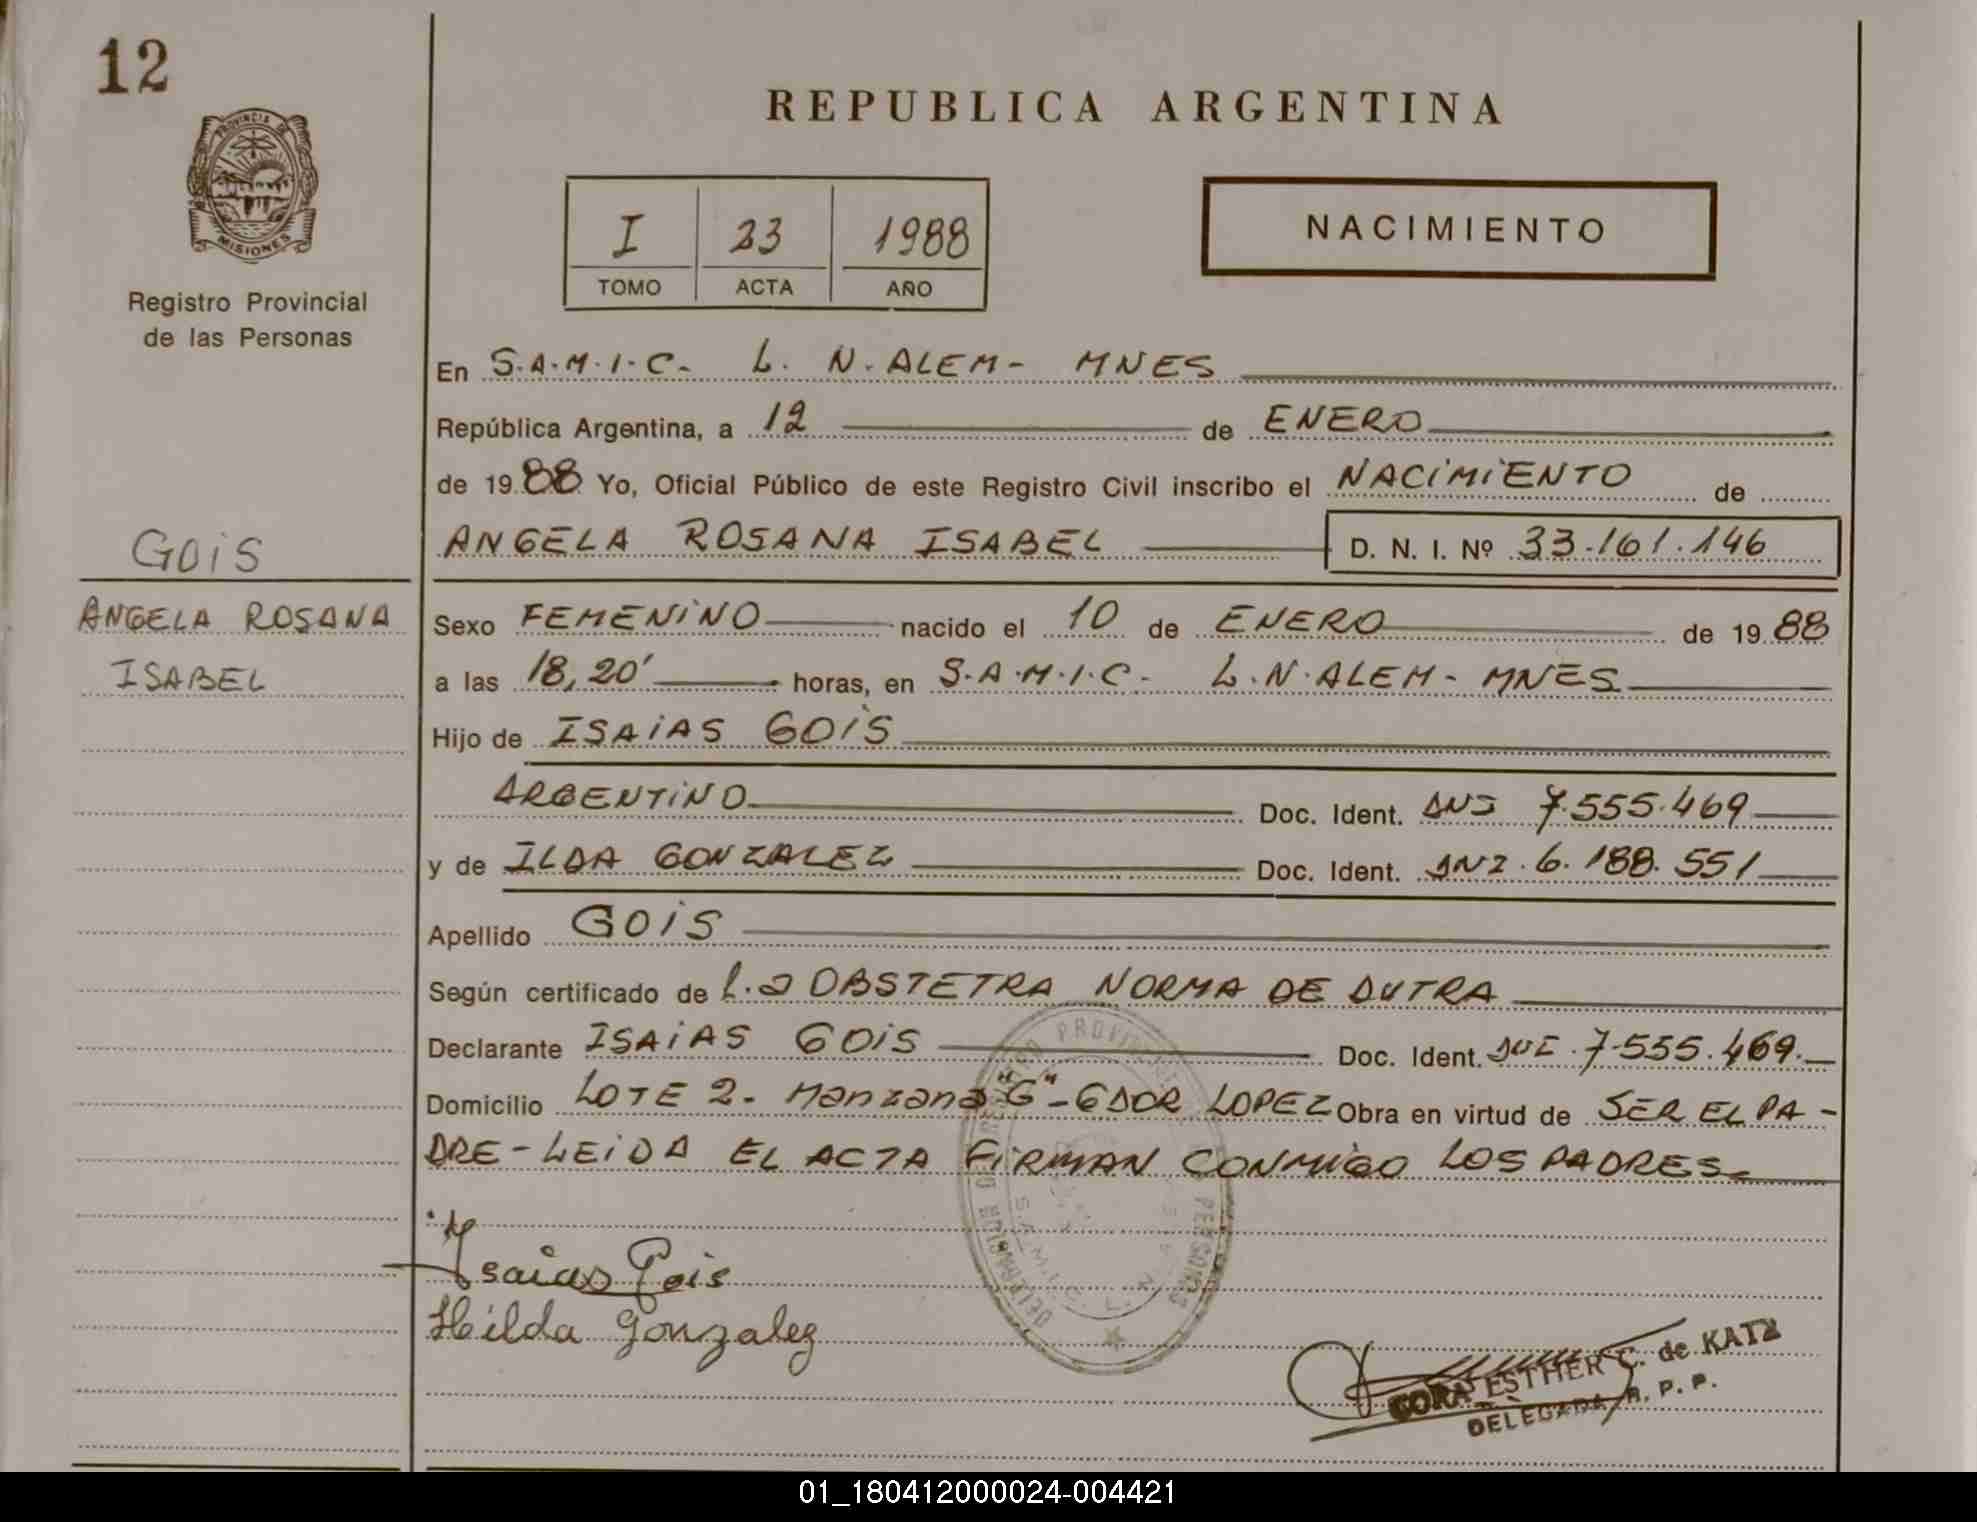 12
REPUBLICA ARGENTINA
PROVINCIA DE
MISIONES
Registro Provincial
de las Personas
I 23 1988
TOMO ACTA AÑO
NACIMIENTO
En S.A.M.I.C. L. N. ALEM - MNES
República Argentina, a 12 de ENERO
de 1988 Yo, Oficial Público de este Registro Civil inscribo el NACIMIENTO de
GOIS
ANGELA ROSANA ISABEL D. N. I. Nº 33.161.146
ANGELA ROSANA
ISABEL
Sexo FEMENINO nacido el 10 de ENERO de 1988
a las 18,20' horas, en S.A.M.I.C - L.N.ALEM - MNES
Hijo de ISAIAS GOIS
ARGENTINO Doc. Ident. DNI 7.555.469
y de ILDA GONZALEZ Doc. Ident. DNI. 6.188.551
Apellido GOIS
Según certificado de L.a OBSTETRA NORMA DE DUTRA
Declarante ISAIAS GOIS Doc. Ident. DNI. 7.555.469.
Domicilio LOTE 2- Manzana "G" - GDOR LOPEZ Obra en virtud de SER EL PA-
DRE - LEIDA EL ACTA FIRMAN CONMIGO LOS PADRES
Isaias Gois
Hilda Gonzalez
ESTHER C. de KATZ
DELEGADA R. P. P.
01_180412000024-004421